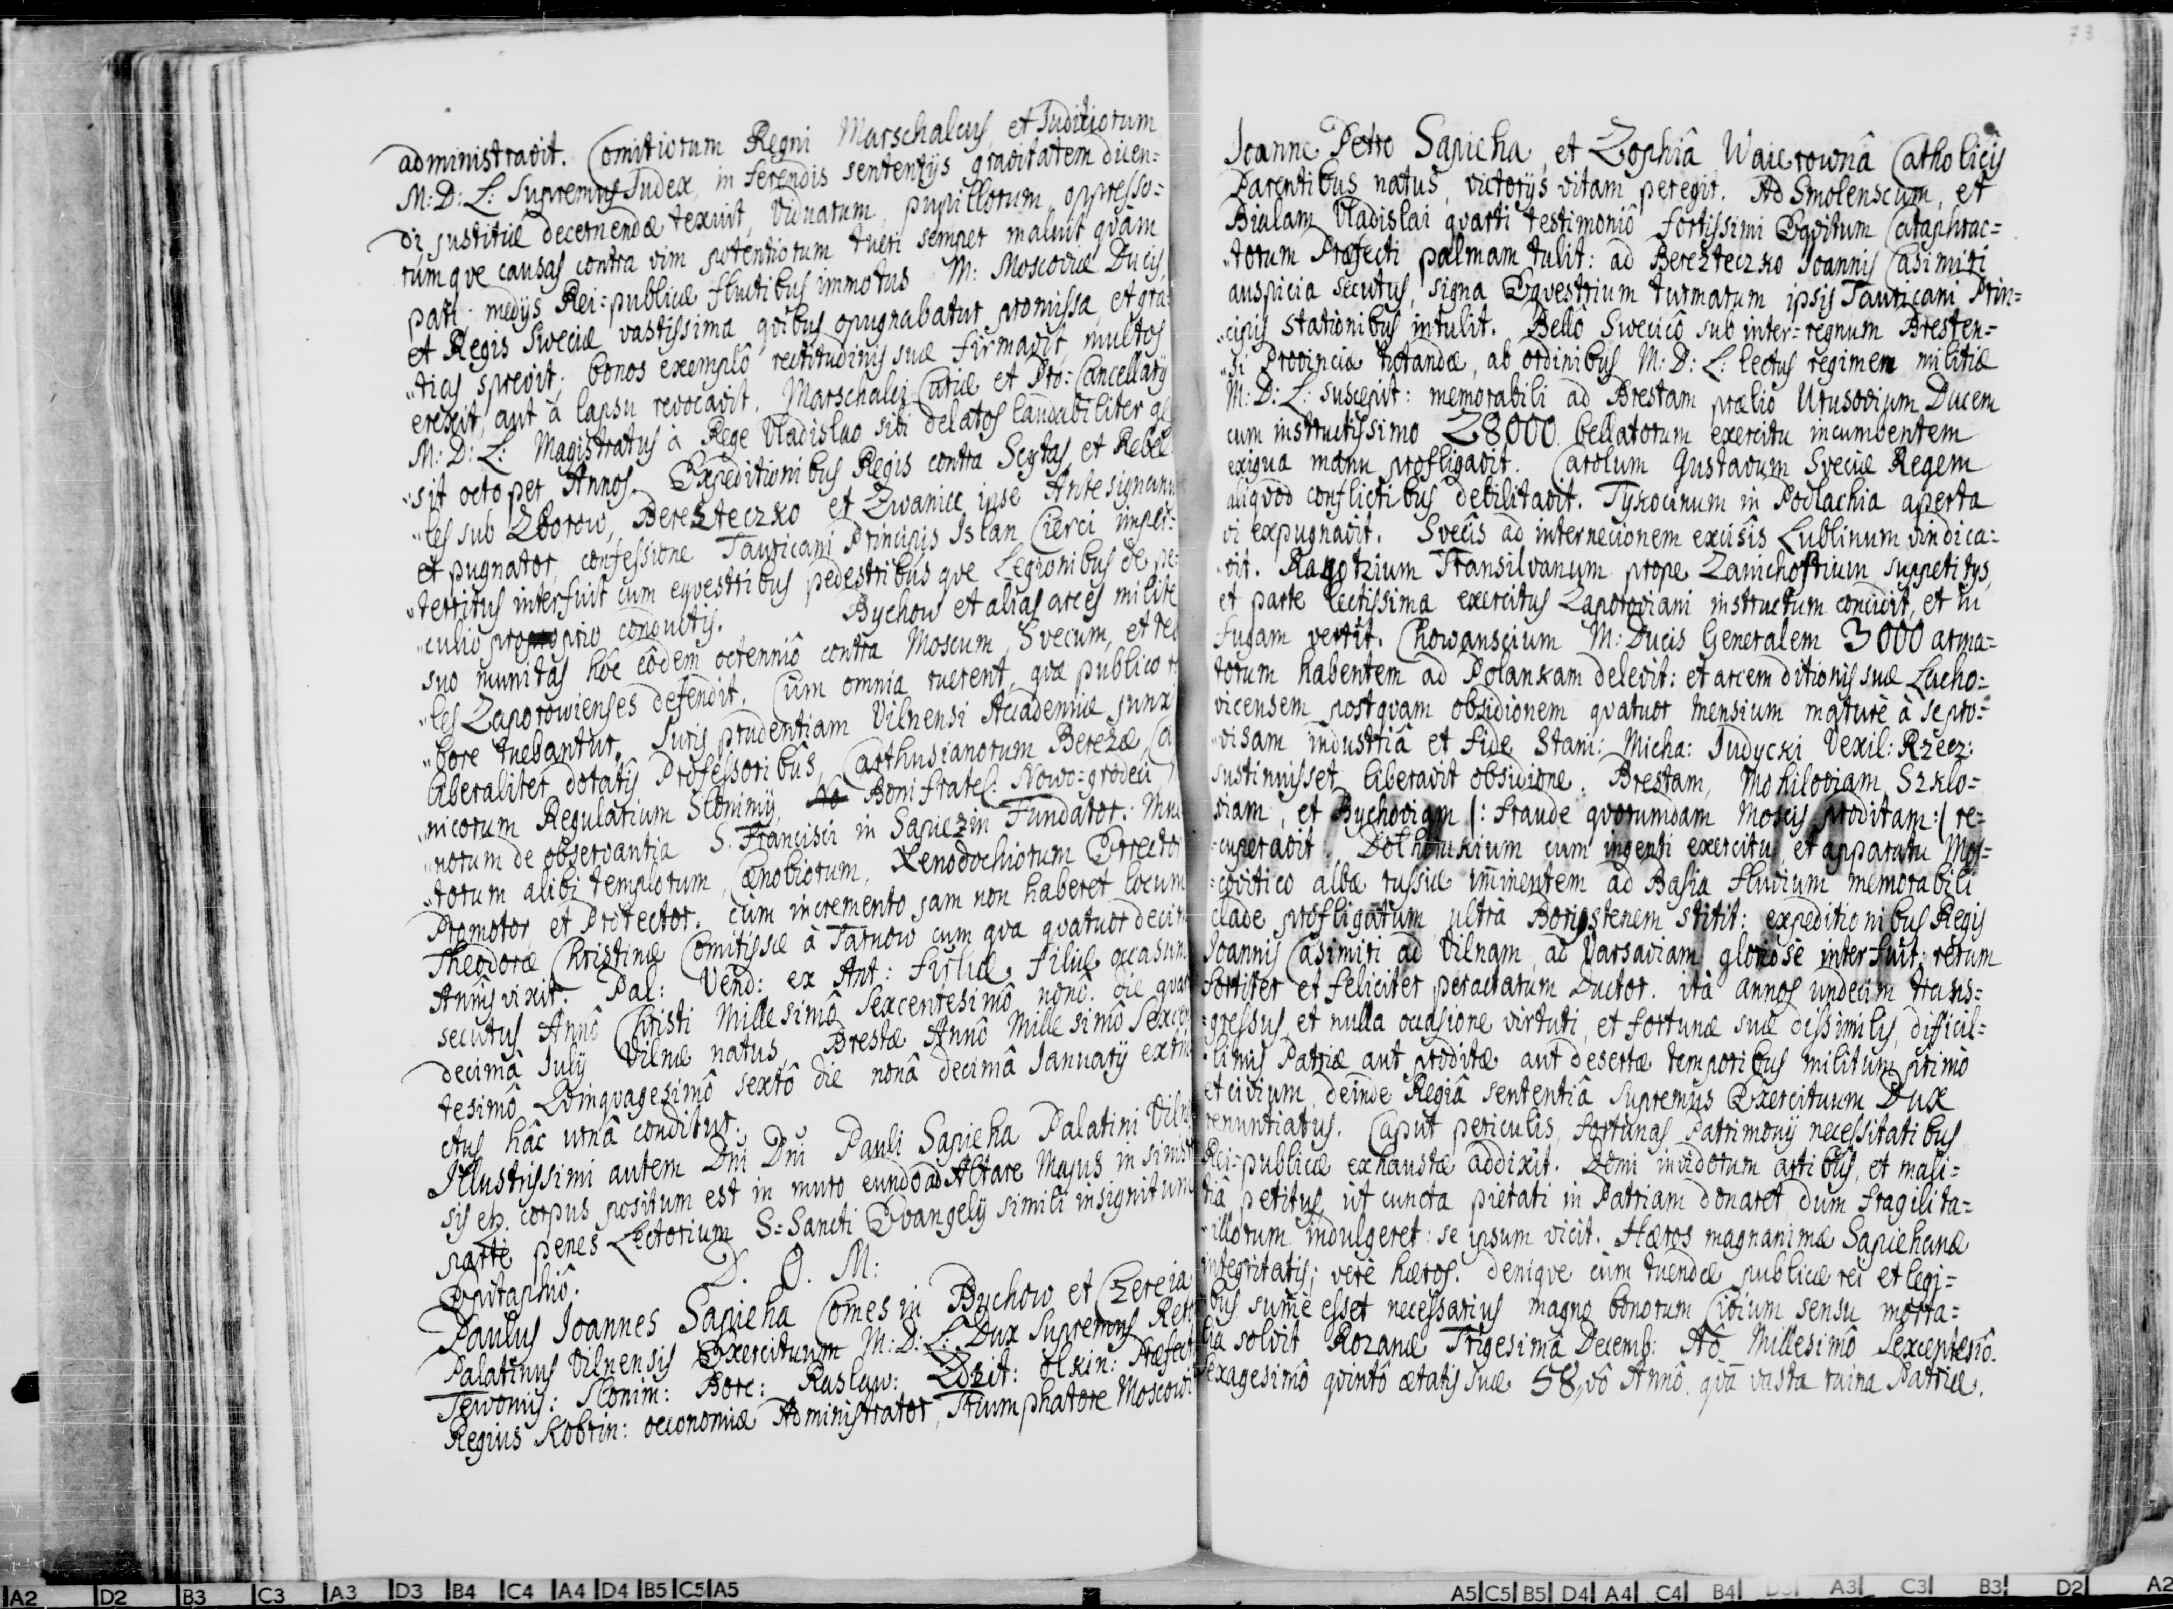 administravit. Comitiorum Regni Marschalcus, et Juditiorum
M: D: L: Supremus Judex, in ferendis sententijs gravitatem dicen=
di justitiæ decernendæ texuit, Viduarum, pupillorum, oppresso=
rumqve causas contra vim potentiorum tueri semper maluit qvàm
pati. medijs Rei=publicæ fluctibus immotus M: Moscoviæ Ducis,
et Regis Sveciæ vastissima, qvibus opugnabatur promissa, et gra=
„tias sprevit; bonos exemplô rectitudinis suæ firmavit, multos
erexit, aut à lapsu revocavit. Marschalci Curiæ et Pro=Cancellarij
M: D: L: Magistratus à Rege Vladislao sibi delatos laudabiliter ge
„sit octo per Annos. Expeditionibus Regis contra Scytas et Rebel
„les sub Zborow, Beresteczko et Zwaniec ipse Antesignanus
et pugnator, confessione Tauricani Principis Islan Cierci imper=
„territus interfuit cum eqvestribus pedestribusqve Legionibus de pe=
„culio proprio conductis. Bychow et alias arces milite
suo munitas hôc eôdem octenniô contra Moscum, Svecum, et reb
„les Zaporowienses defendit. Cùm omnia ruerent, qvæ publico
„bore tuebantur. Juris prudentiam Vilnensi Accademiæ junx
liberaliter dotatis Professoribûs, Carthusianorum Berezæ Ca
„nicorum Regularium Slonimij, Bonifratel: Nowo=grodeci
„norum de observantia S. Francisci in Sapiezin Fundator: Mul
„torum alibi templorum, Cœnobiorum, Xenodochiorum Errector
Promotor, et Protector. cùm incremento jam non haberet locum
Theodoræ Christinæ Comitissæ à Tarnow cum qva qvatuordecim
Annis vixit. Pal: Vend: ex Ant: Firliæ filiæ occasum
secutus Annô Christi Millesimô Sexcentesimô nonô. die qvar
decimâ Julij Vilnæ natus, Brestæ Annô Millesimô Sexcen
tesimô Qvinqvagesimô sextô die nonâ decimâ Januarij extin
ctus hâc urnâ conditur.
Illustrissimi autem Dnĩ Dnĩ Pauli Sapieha Palatini Viln
sis etc. corpus positum est in muro eundo ad Altare Majus in sinis
parte penes Lectorium S=Sancti Evangelij simili insignitum
Epitaphiô.
D. O. M:
Paulus Joannes Sapieha Comes in Bychow et Czereia
Palatinus Vilnensis Exercituum M: D: L: Dux Supremus Ret
Tewonis: Slonim: Borc: Raslaw: Olkin: Præfect
Regius Kobrin: œconomiæ Administrator, Triumphatore Moscowi
73
Joanne Petro Sapieha, et Zophiâ Waierownâ Catholicis
Parentibus natus, victorijs vitam peregit. Ad Smolenscum, et
Bialam Vladislai qvarti testimoniô fortissimi Eqvitum Cataphrac=
„torum Præfecti palmam tulit: ad Berezteczko Joannis Casimiri
auspicia secutus, signa Eqvestrium turmarum ipsis Tauricani Prin=
„cipis stationibus intulit. Bellô Svecicô sub inter=regnum Bresten=
„si Provinciæ rotandæ, ab ordinibus M: D: L: lectus regimen militiæ
M: D: L: suscepit: memorabili ad Brestam prælio Urusovium Ducem
cum instructissimo 28000. bellatorum exercitu incumbentem
exigua manu profligavit. Carolum Gustavum Sveciæ Regem
aliqvod conflictibus debilitavit. Tykocinum in Podlachia aperta
vi expugnavit. Svecis ad internecionem excisis Lublinum vindica=
„vit. Ragotzium Transilvanum prope Zamchostium suppetitijs,
et parte lectissima exercitus Zaporoviani instructum concidit, et in
fugam vertit. Chowanscium M: Ducis Generalem 3000 arma=
torum habentem ad Polankam delevit: et arcem ditionis suæ Lacho=
vicensem postqvam obsidionem qvatuor mensium maturè à se pro=
„visam industriâ et fide Stani: Micha: Judycki Vexil: Rzecz:
sustinuisset, liberavit obsidione. Brestam, Mohiloviam, Szklo=
viam, et Bychoviam (: fraude qvorumdam Moscis proditam:) re=
=cuperavit. Dolhorukium cum ingenti exercitu, et apparatu Mos=
=covitico albæ russiæ im̃inentem ad Basia fluvium memorabili
clade profligatum ultrà Boristenem stitit: expeditionibus Regis
Joannis Casimiri ad Vilnam, ad Varsaviam gloriosè interfuit: rerum
fortiter et feliciter peractarum Ductor. ità annos undecim trans=
=gressus, et nulla occasione virtuti, et fortunæ suæ dissimilis, difficil=
„limis Patriæ aut proditæ aut desertæ temporibus militum primò
et civium, deinde Regiâ sententiâ Supremus Exercituum Dux
renuntiatus. Caput periculis, fortunas Patrimonij necessitatibus
Rei=publicæ exhaustæ addixit. Domi invidorum artibus, et mali=
tiâ petitus, ut cuncta pietati in Patriam donaret, dum fragilita=
„illorum indulgeret: se ipsum vicit. Hæros magnanimæ Sapiehanæ
integritatis; verè hæros. deniqve cùm tuendæ publicæ rei et legi=
bus sum̃e esset necessarius magno bonorum Civium sensu morta=
lia solvit Rozanæ Trigesimâ Decemb: Aõ Millesimô Sexcentesiô.
Sexagesimô qvintô ætatis suæ 58,vô Annô. qvâ vasta ruina Patriæ.